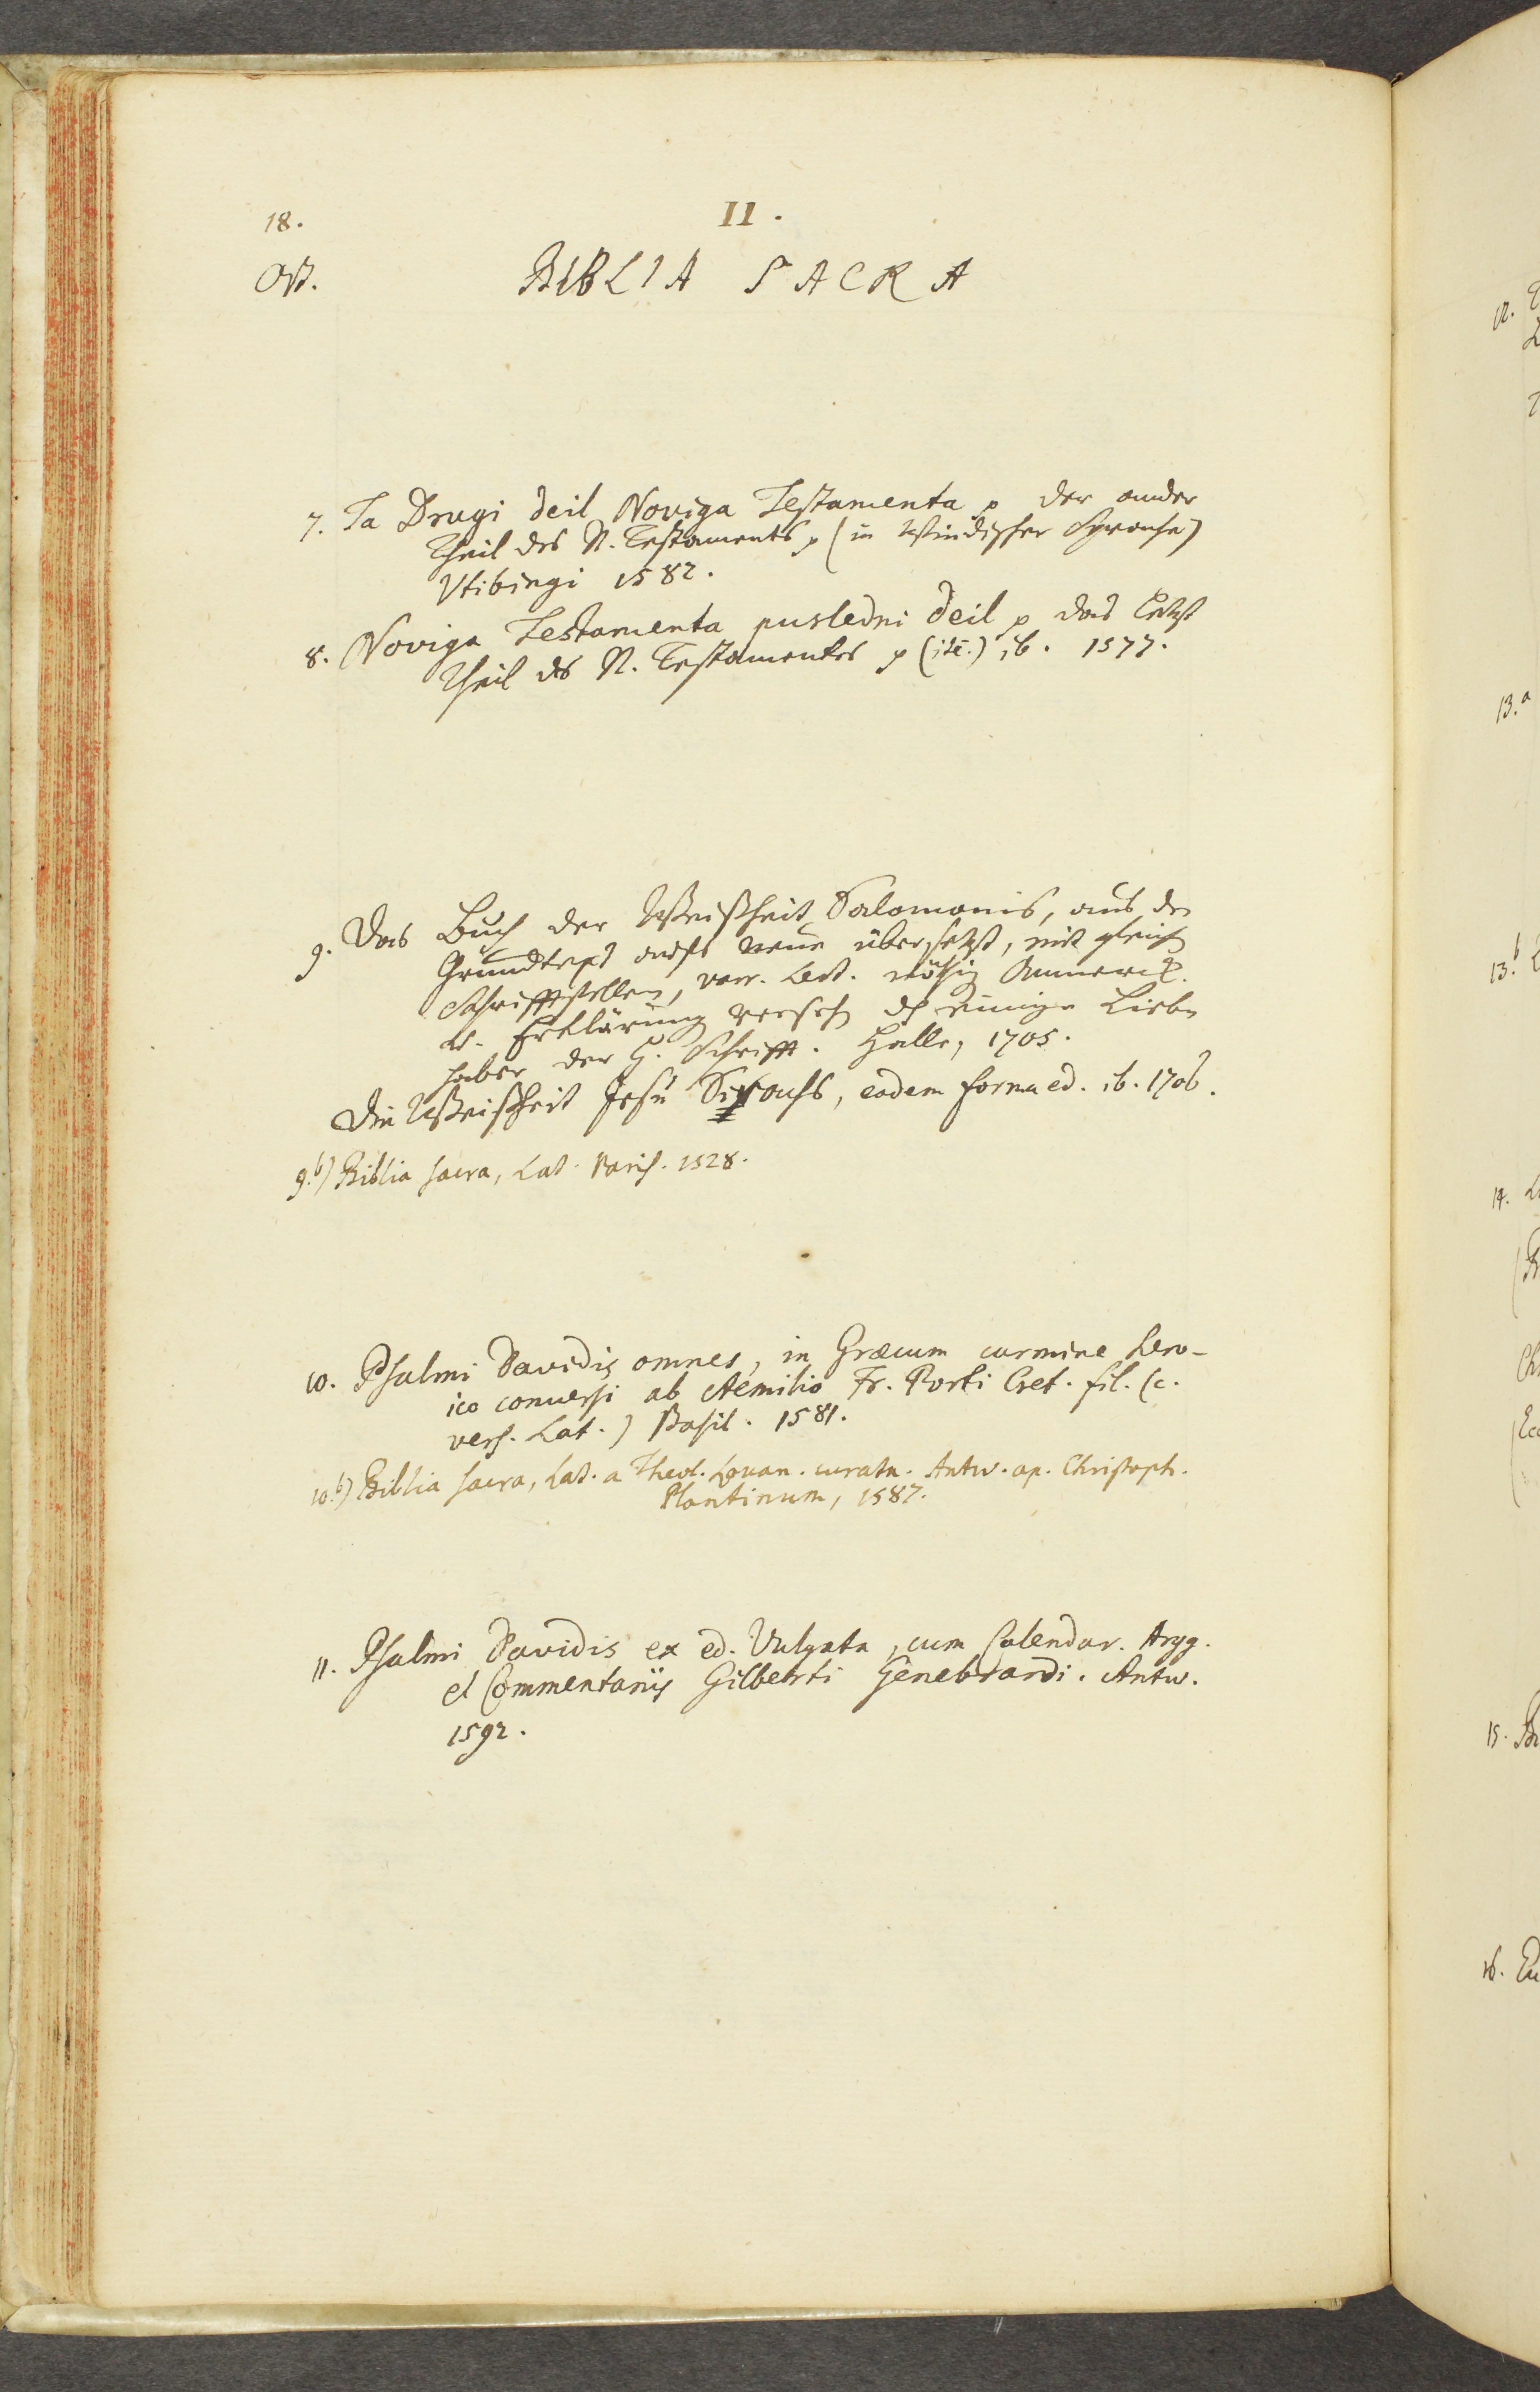 18.
II.
Oct.
BIBLIA SACRA
7. Ta Drugi deil Noviga Testamenta p der ander
Theil des N. Testaments p (in Windischer Sprache)
Vtibingi 1582.
8. Noviga Testamenta pusledni deil p das Letzst
Theil des N. Testamentes p (itē.) ib. 1577.
9. Das Buch der Weißheit Salomonis, aus dem
Grundtext aufs neue übersetzt, mit gleich
Schrifftstellen, varr. Lect. nöthig Anmerck.
u. Erklärung verseh. durch einige Lieb-
haber der H. Schrifft. Halle, 1705.
Die Weißheit Jesu Sirachs, eadem forma ed. ib. 1706.
9.b) Biblia sacra, Lat. Paris. 1528.
10. Psalmi Davidis omnes, in Græcum carmine hero-
ico conversi ab Aemilio Fr. Porti Cret. fil. (c.
vers. Lat.) Basil. 1581.
10.b) Biblia sacra, Lat. a Theol. Lovan. curata. Antw. ap. Christoph.
Plantinum, 1587.
11. Psalmi Davidis ex ed. Vulgata, cum Calendar.
et Commentariis Gilberti Genebrardi. Antw.
1592.
12.
13.a
13.b
14.
15.
16.